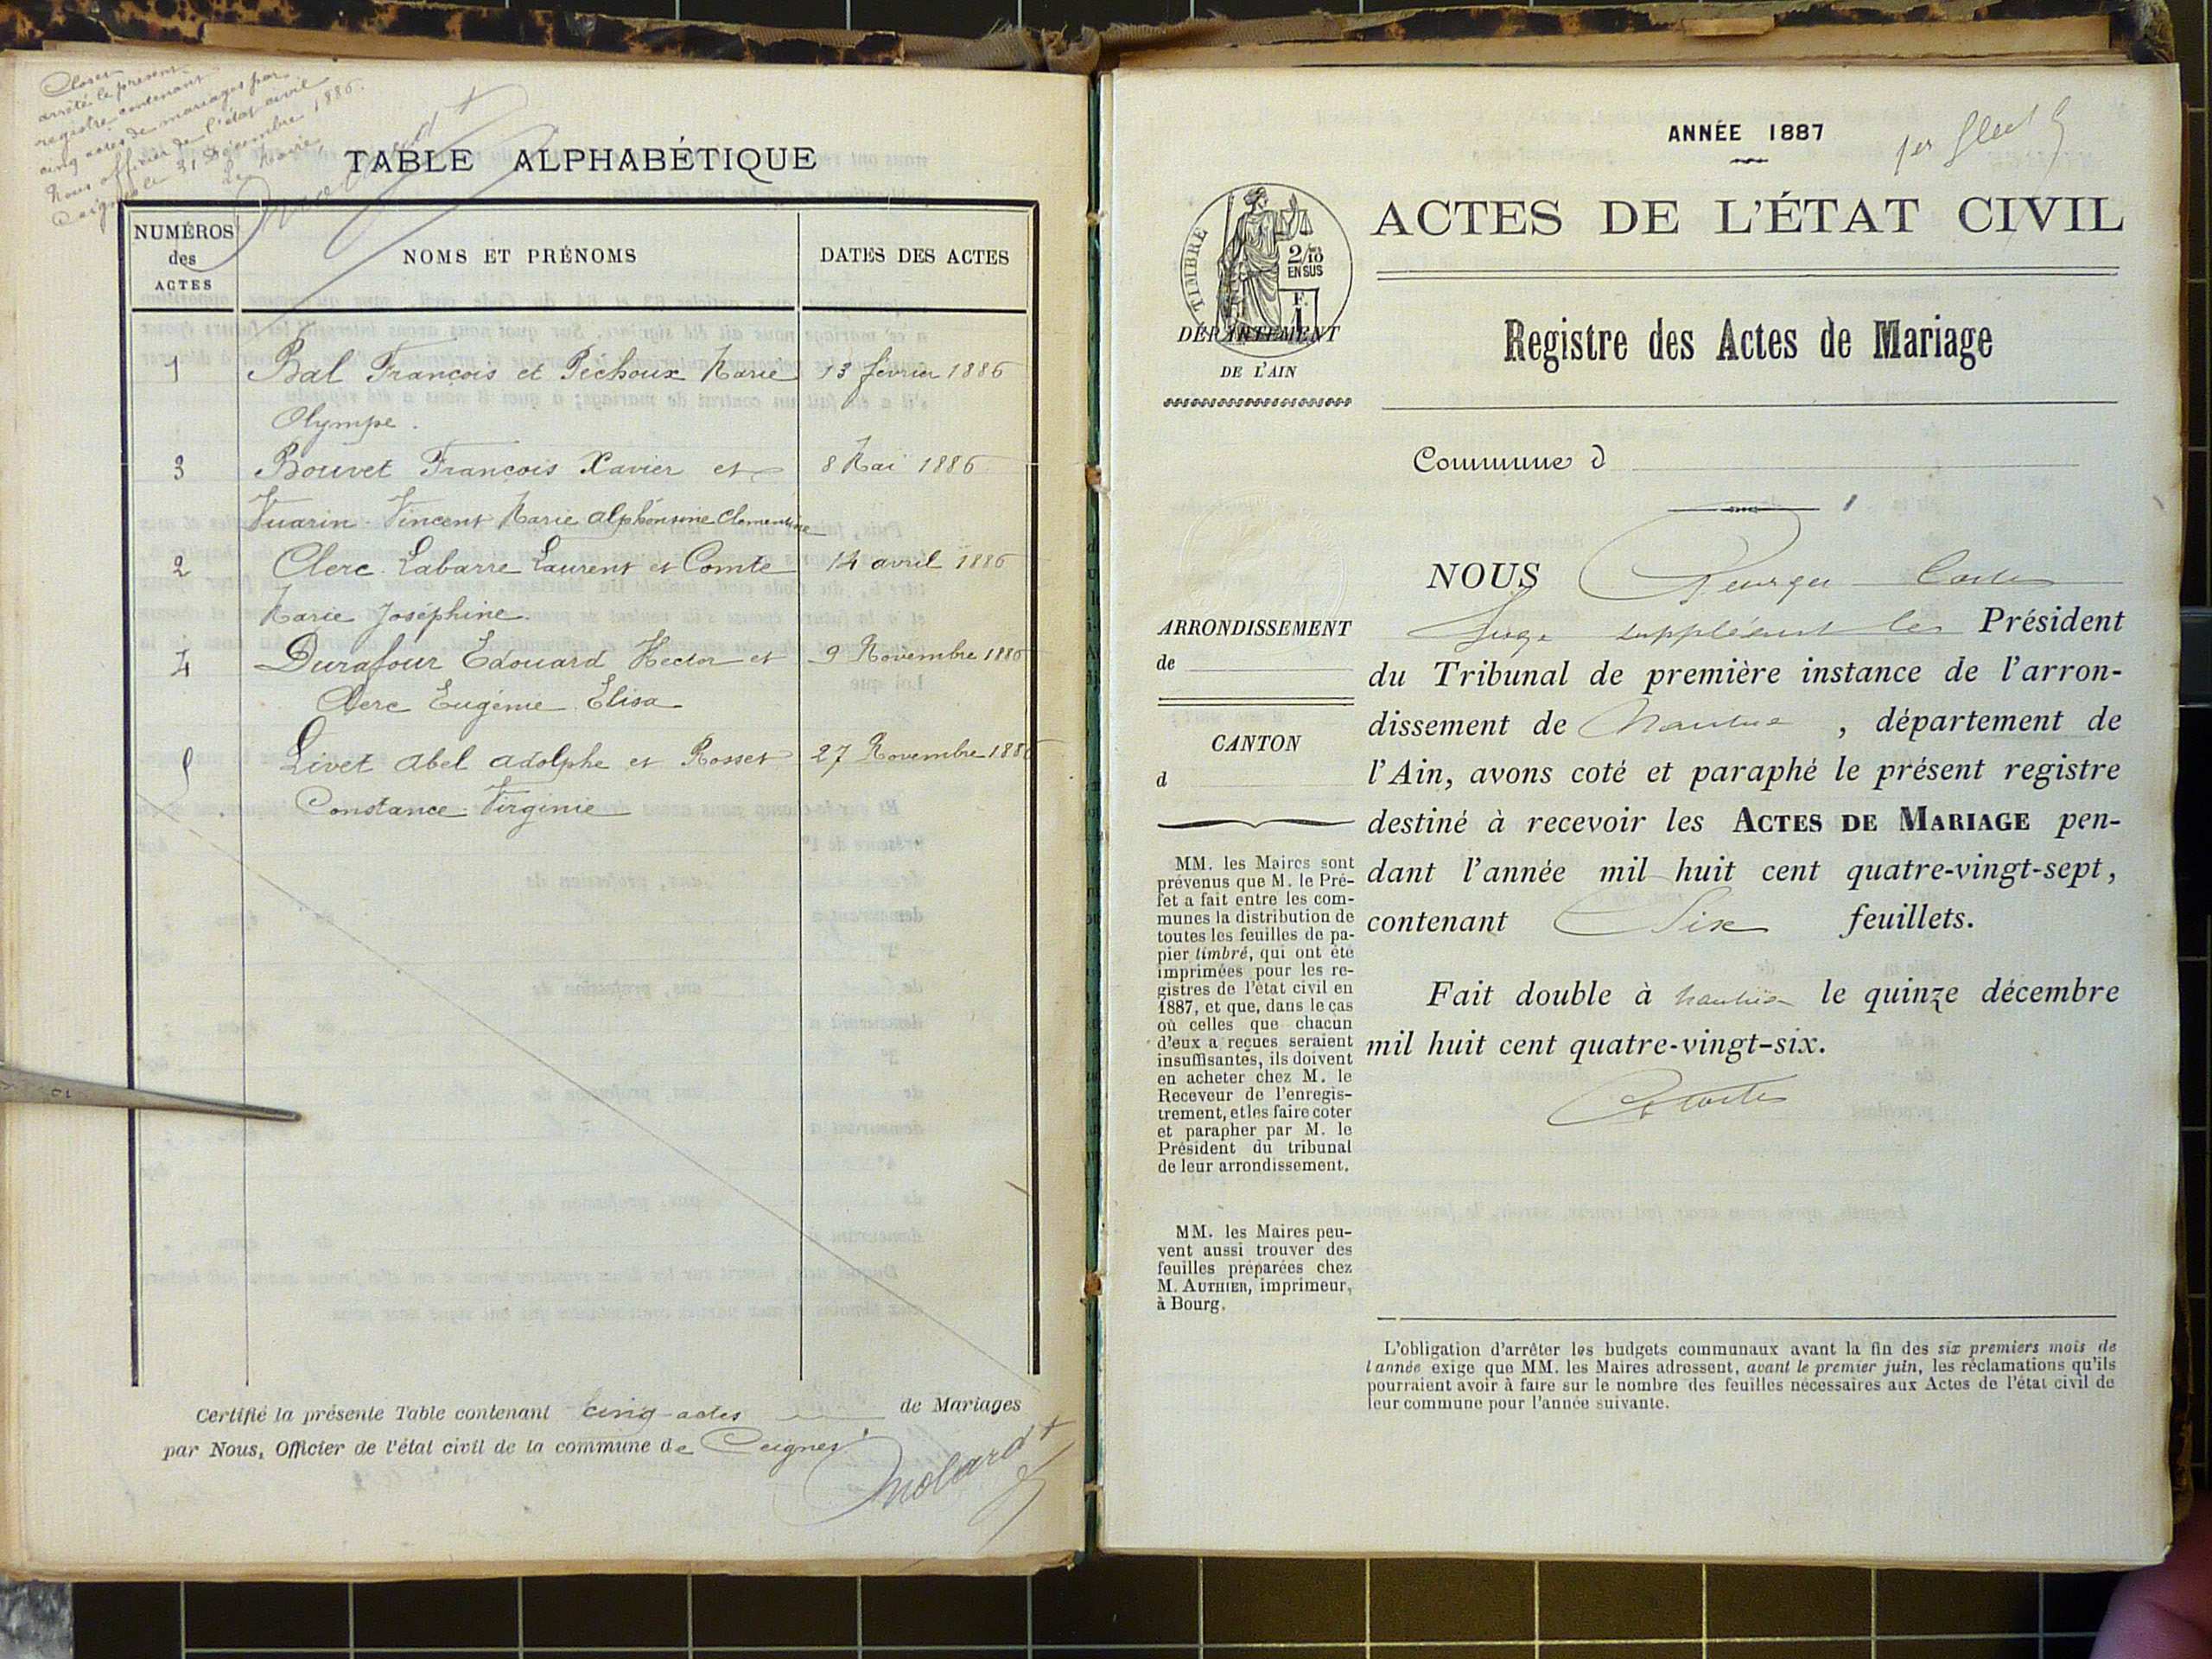 Closes
arrêté le présent
registre contenant
cinq actes de mariages par
Nous officier de l'état civil
Ceignes le 31 Décembre 1886.
Le Maire,
TABLE ALPHABÉTIQUE
NUMÉROS
des
ACTES
NOMS ET PRÉNOMS
DATES DES ACTES
1 Bal François et Péchoux Marie 13 février 1886
Olympe.
3 Bouvet François Xavier et 8 Mai 1886
Vuarin Vincent Marie Alphonsine Clementine
2 Clerc Labarre Laurent et Comte 14 avril 1886
Marie Joséphine.
4 Durafour Edouard Hector et 9 Novembre 1886
Clerc Eugénie Elisa
5 Livet Abel Adolphe et Rosset 27 Novembre 1886
Constance Virginie
Certifié la présente Table contenant cinq actes de Mariages
par Nous, Officier de l'état civil de la commune de Ceignes
Molard
ANNÉE 1887
1er
ACTES DE L'ÉTAT CIVIL
TIMBRE
2/10
EN SUS
F.
1
DÉPARTEMENT
DE L'AIN
Registre des Actes de Mariage
Commune d
NOUS
ARRONDISSEMENT
de
CANTON
d
Juge suppléant le Président
du Tribunal de première instance de l'arron-
dissement de Nantua, département de
l'Ain, avons coté et paraphé le présent registre
destiné à recevoir les ACTES DE MARIAGE pen-
dant l'année mil huit cent quatre-vingt-sept,
contenant Six feuillets.
Fait double à Nantua le quinze décembre
mil huit cent quatre-vingt-six.
MM. les Maires sont
prévenus que M. le Pré-
fet a fait entre les com-
munes la distribution de
toutes les feuilles de pa-
pier timbré, qui ont été
imprimées pour les re-
gistres de l'état civil en
1887, et que, dans le cas
où celles que chacun
d'eux a reçues seraient
insuffisantes, ils doivent
en acheter chez M. le
Receveur de l'enregis-
trement, et les faire coter
et parapher par M. le
Président du tribunal
de leur arrondissement.
MM. les Maires peu-
vent aussi trouver des
feuilles préparées chez
M. AUTHIER, imprimeur,
à Bourg.
L'obligation d'arrêter les budgets communaux avant la fin des six premiers mois de
l'année exige que MM. les Maires adressent, avant le premier juin, les réclamations qu'ils
pourraient avoir à faire sur le nombre des feuilles nécessaires aux Actes de l'état civil de
leur commune pour l'année suivante.